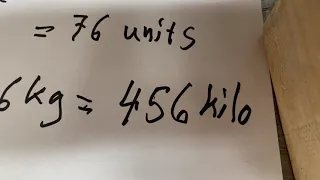 = 76 units
6 kg = 456 kilo